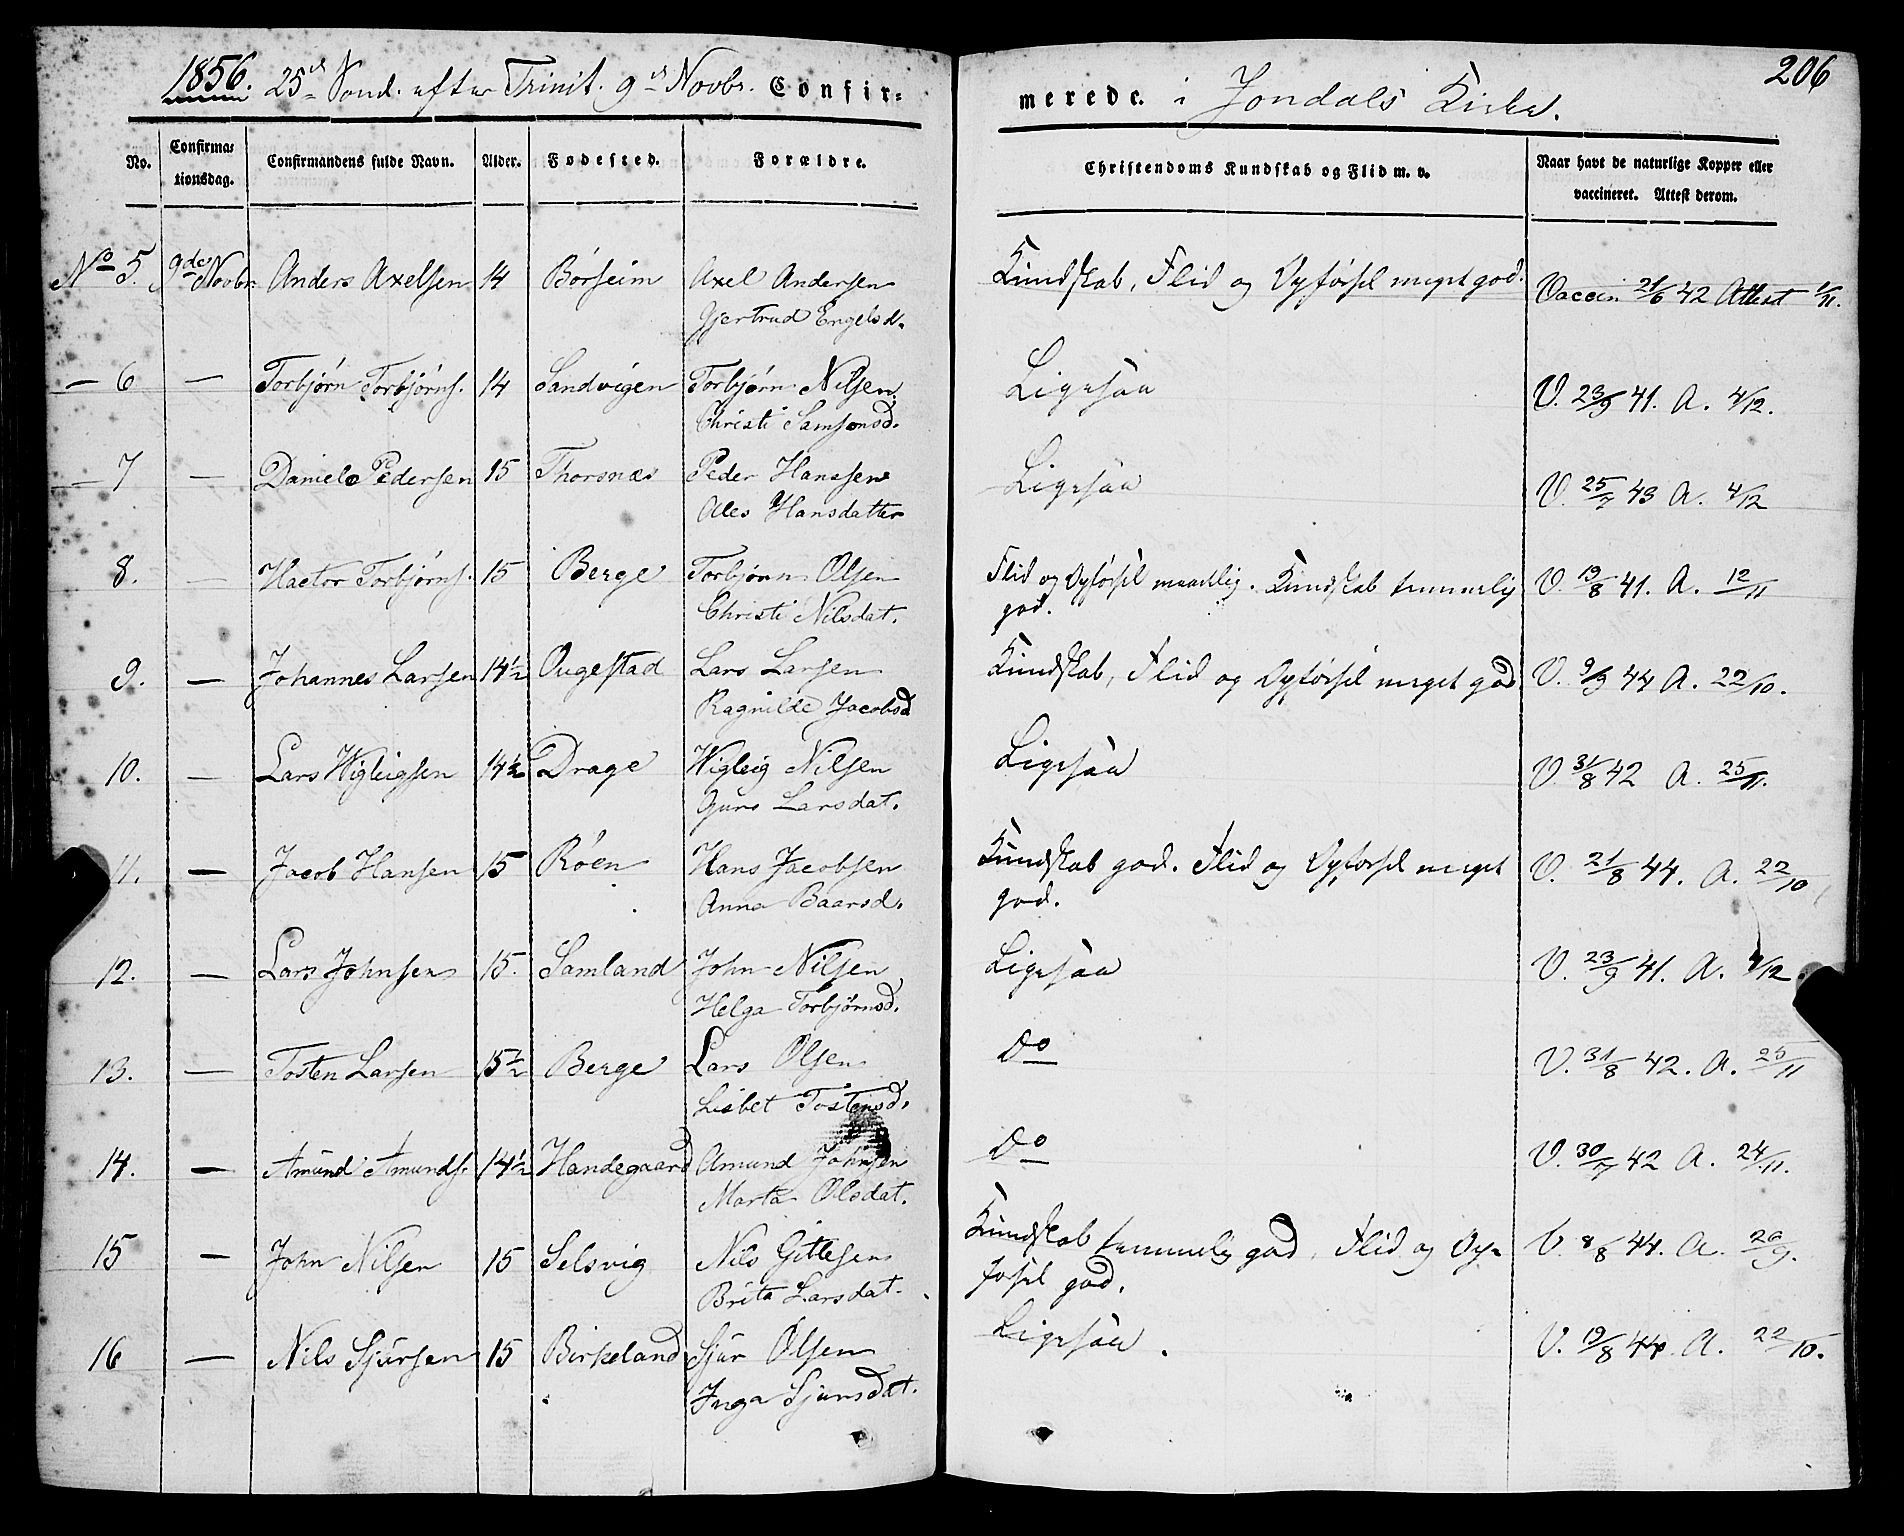 1856. 25de Sond. efter Trinit. 9de Novbr. Confir-
merede. i Jondals Kirke. 206
No. Confirmationsdag. Confirmandens fulde Navn. Alder. Fødested. Forældre. Christendoms Kundskab og Flid m. v. Naar havt de naturlige Kopper eller vaccineret. Attest derom.
No 5. 9de Novbr. Anders Axelsen 14 Börseim Axel Andersen Kundskab, Flid og Opførsel meget god. Vaccin 21/6 42 Attest 1/11.
Gjertrud Engelsd.
— 6 — Torbjørn Torbjørns. 14 Sandvigen Torbjørn Nilsen Ligesaa V. 23/9 41. A. 4/12.
Christi Samsonsd.
— 7 — Daniel Pedersen 15 Thorsnæs Peder Hansen Ligesaa V. 25/7 43 A. 4/12
Hansdatter
8. — Hactor Torbjørns. 15 Berge Torbjørn Olsen Flid og Opførsel maadelig. Kundskab temmelig V. 19/8 41. A. 12/11
Christi Nilsdat. god.
9. — Johannes Larsen 14½ Augestad Lars Larsen Kundskab, Flid og Opførsel meget god V. 9/9 44 A. 22/10.
Ragnilde Jacobsd
10. — Lars Wigleigsen 14½ Drage Wigleig Nilsen Ligesaa V. 31/8 42 A. 25/11.
Guro Larsdat.
11. — Jacob Hansen 15 Røen Hans Jacobsen Kundskab god. Flid og Opførsel meget V. 21/8 44. A. 22/10
Anna Baarsd. god.
12. — Lars Johnsen 15. Samland John Nilsen Ligesaa V. 23/9 41. A. 4/12
Helga Torbjørnsd.
13. — Tosten Larsen 15½ Berge Lars Olsen Do V. 31/8 42. A. 25/11
Lisbet Tostensd.
14. — Amund Amunds. 14½ Handegaard Amund Johnsen Do V. 30/7 42 A. 24/11.
Marta Olsdat.
15 — John Nilsen 15 Selsvig Nils Gittesen Kundskab temmelig god, Flid og Op- V. 8/8 44. A. 26/9.
Brita Larsdat. førsel god.
16 — Nils Sjursen 15 Birkeland Sjur Olsen Ligesaa. V. 19/8 44 A. 22/10.
Inga Sjursdat.